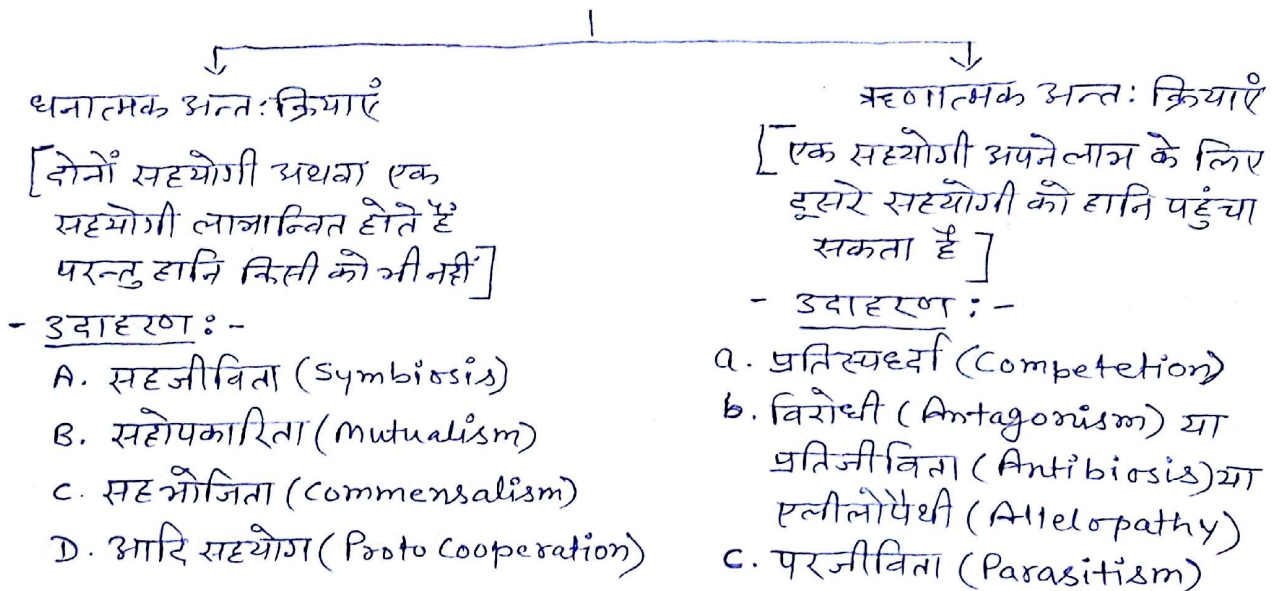 धनात्मक अन्त: क्रियाएं
[दोनों सहयोगी अथवा एक
सहयोगी लाभान्वित होते हैं
परन्तु हानि किसी को भी नहीं]
- उदाहरण : -
A. सहजीविता (Symbiosis)
B. सहोपकारिता (Mutualism)
C. सहभोजिता (Commensalism)
D. आदि सहयोग (Proto Cooperation)
ऋणात्मक अन्त: क्रियाएं
[एक सहयोगी अपने लाभ के लिए
दूसरे सहयोगी को हानि पहुंचा
सकता है]
- उदाहरण : -
a. प्रतिस्पर्ध्दा (Competetion)
b. विरोधी (Antagonism) या
प्रतिजीविता (Antibiosis) या
एलीलोपैथी (Allelopathy)
c. परजीविता (Parasitism)